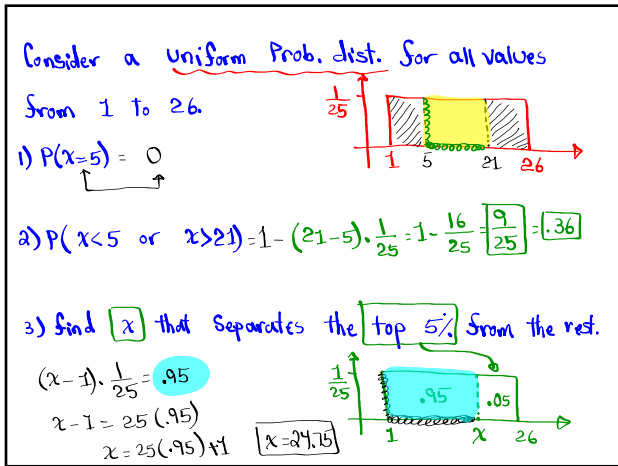 Consider a uniform Prob. dist. for all values
from 1 to 26.
1/25
1 5 21 26
1) P(x=5) = 0
2) P(x<5 or x>21) = 1 - (21-5)·1/25 = 1 - 16/25 = 9/25 = .36
3) find x that separates the top 5% from the rest.
(x-1)·1/25 = .95
x-1 = 25(.95)
x = 25(.95)+1
x=24.75
1/25
.95 .05
1 x 26